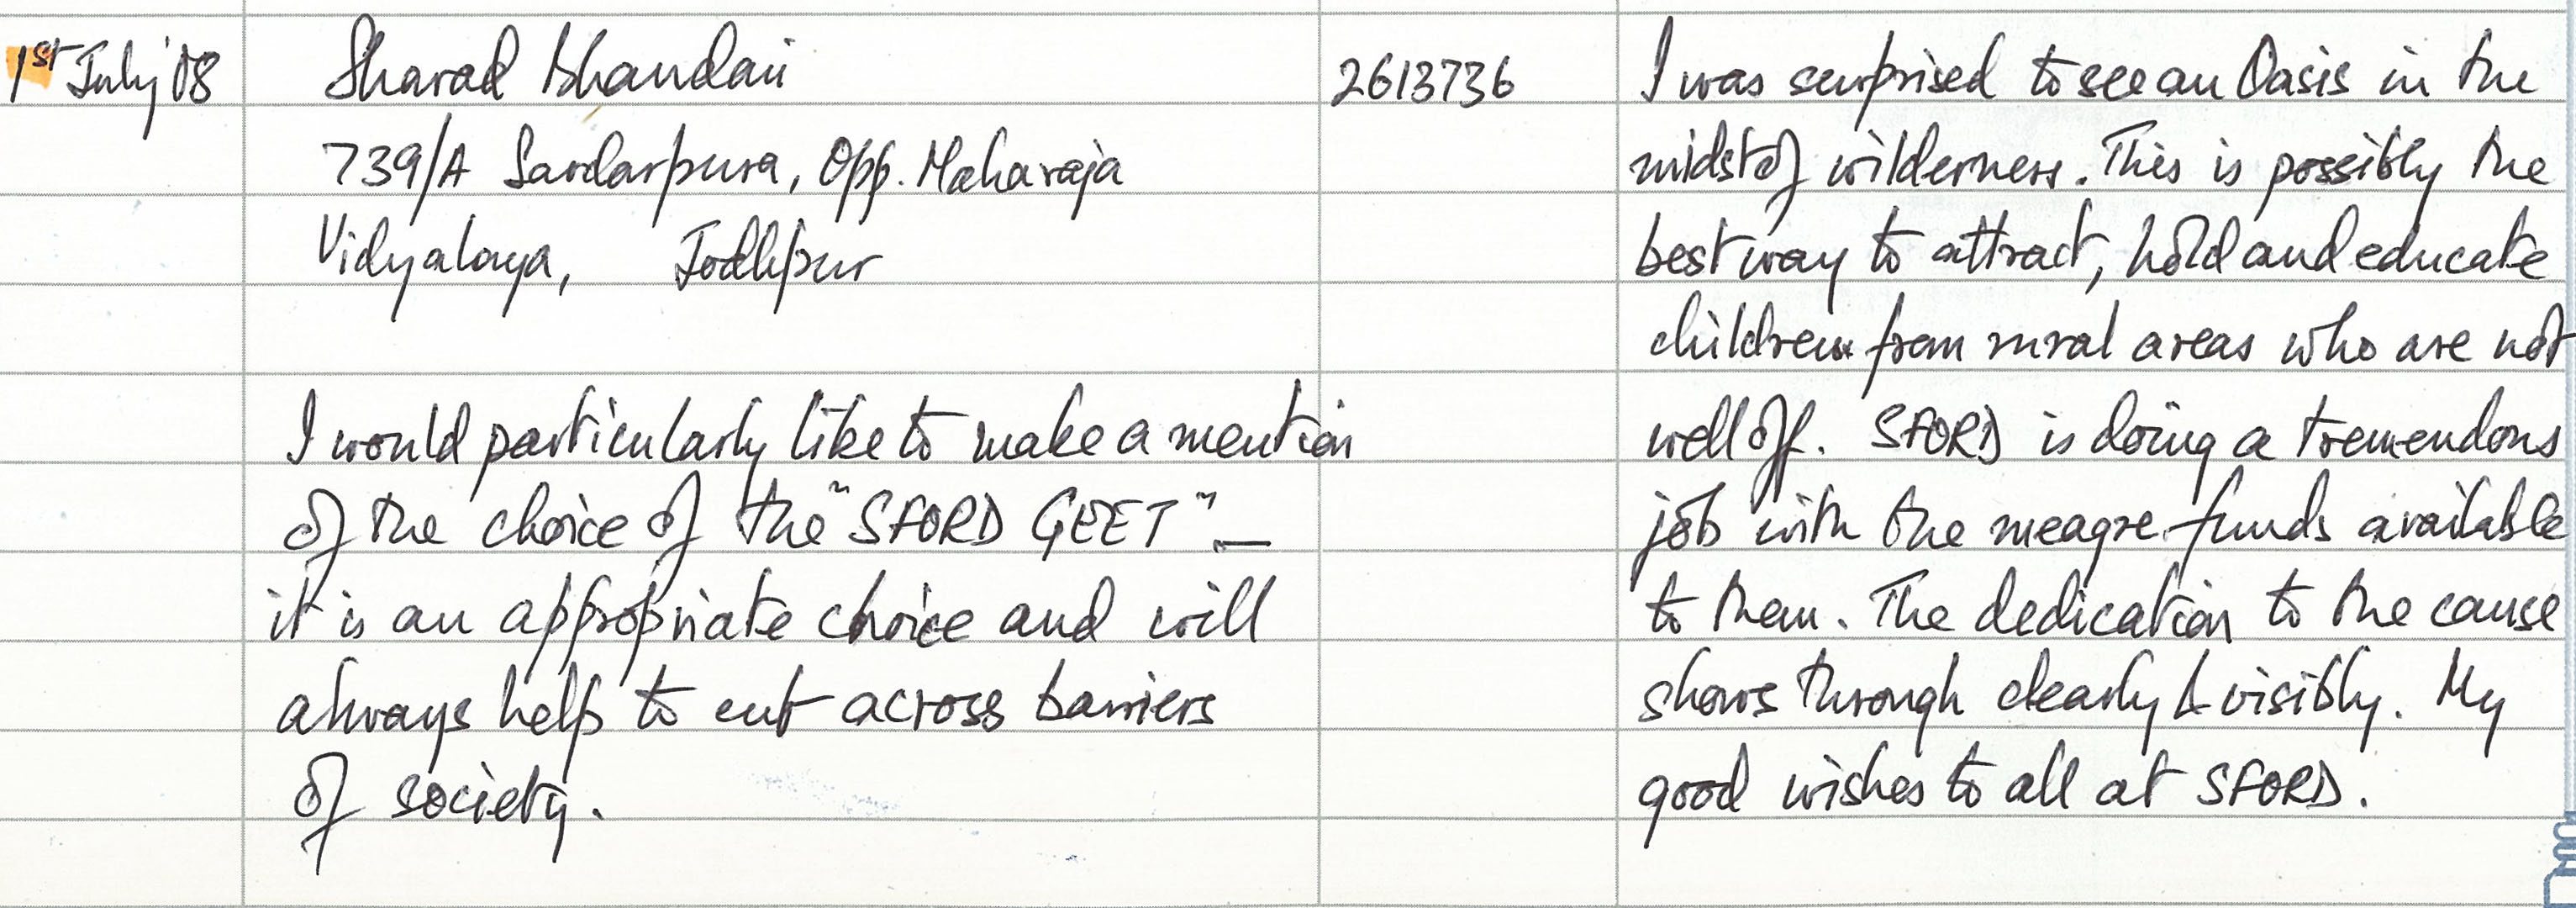 1st July '08
Sharad Bhandari
739/A Sardarpura, Opp. Maharaja
Vidyalaya, Jodhpur
2613736
I was surprised to see an Oasis in the
midst of wilderness. This is possibly the
best way to attract, hold and educate
children from rural areas who are not
well off. SFORD is doing a tremendous
job with the meagre funds available
to them. The dedication to the cause
shows through clearly & visibly. My
good wishes to all at SFORD.
I would particularly like to make a mention
of the choice of the "SFORD GEET" —
it is an appropriate choice and will
always help to cut across barriers
of society.